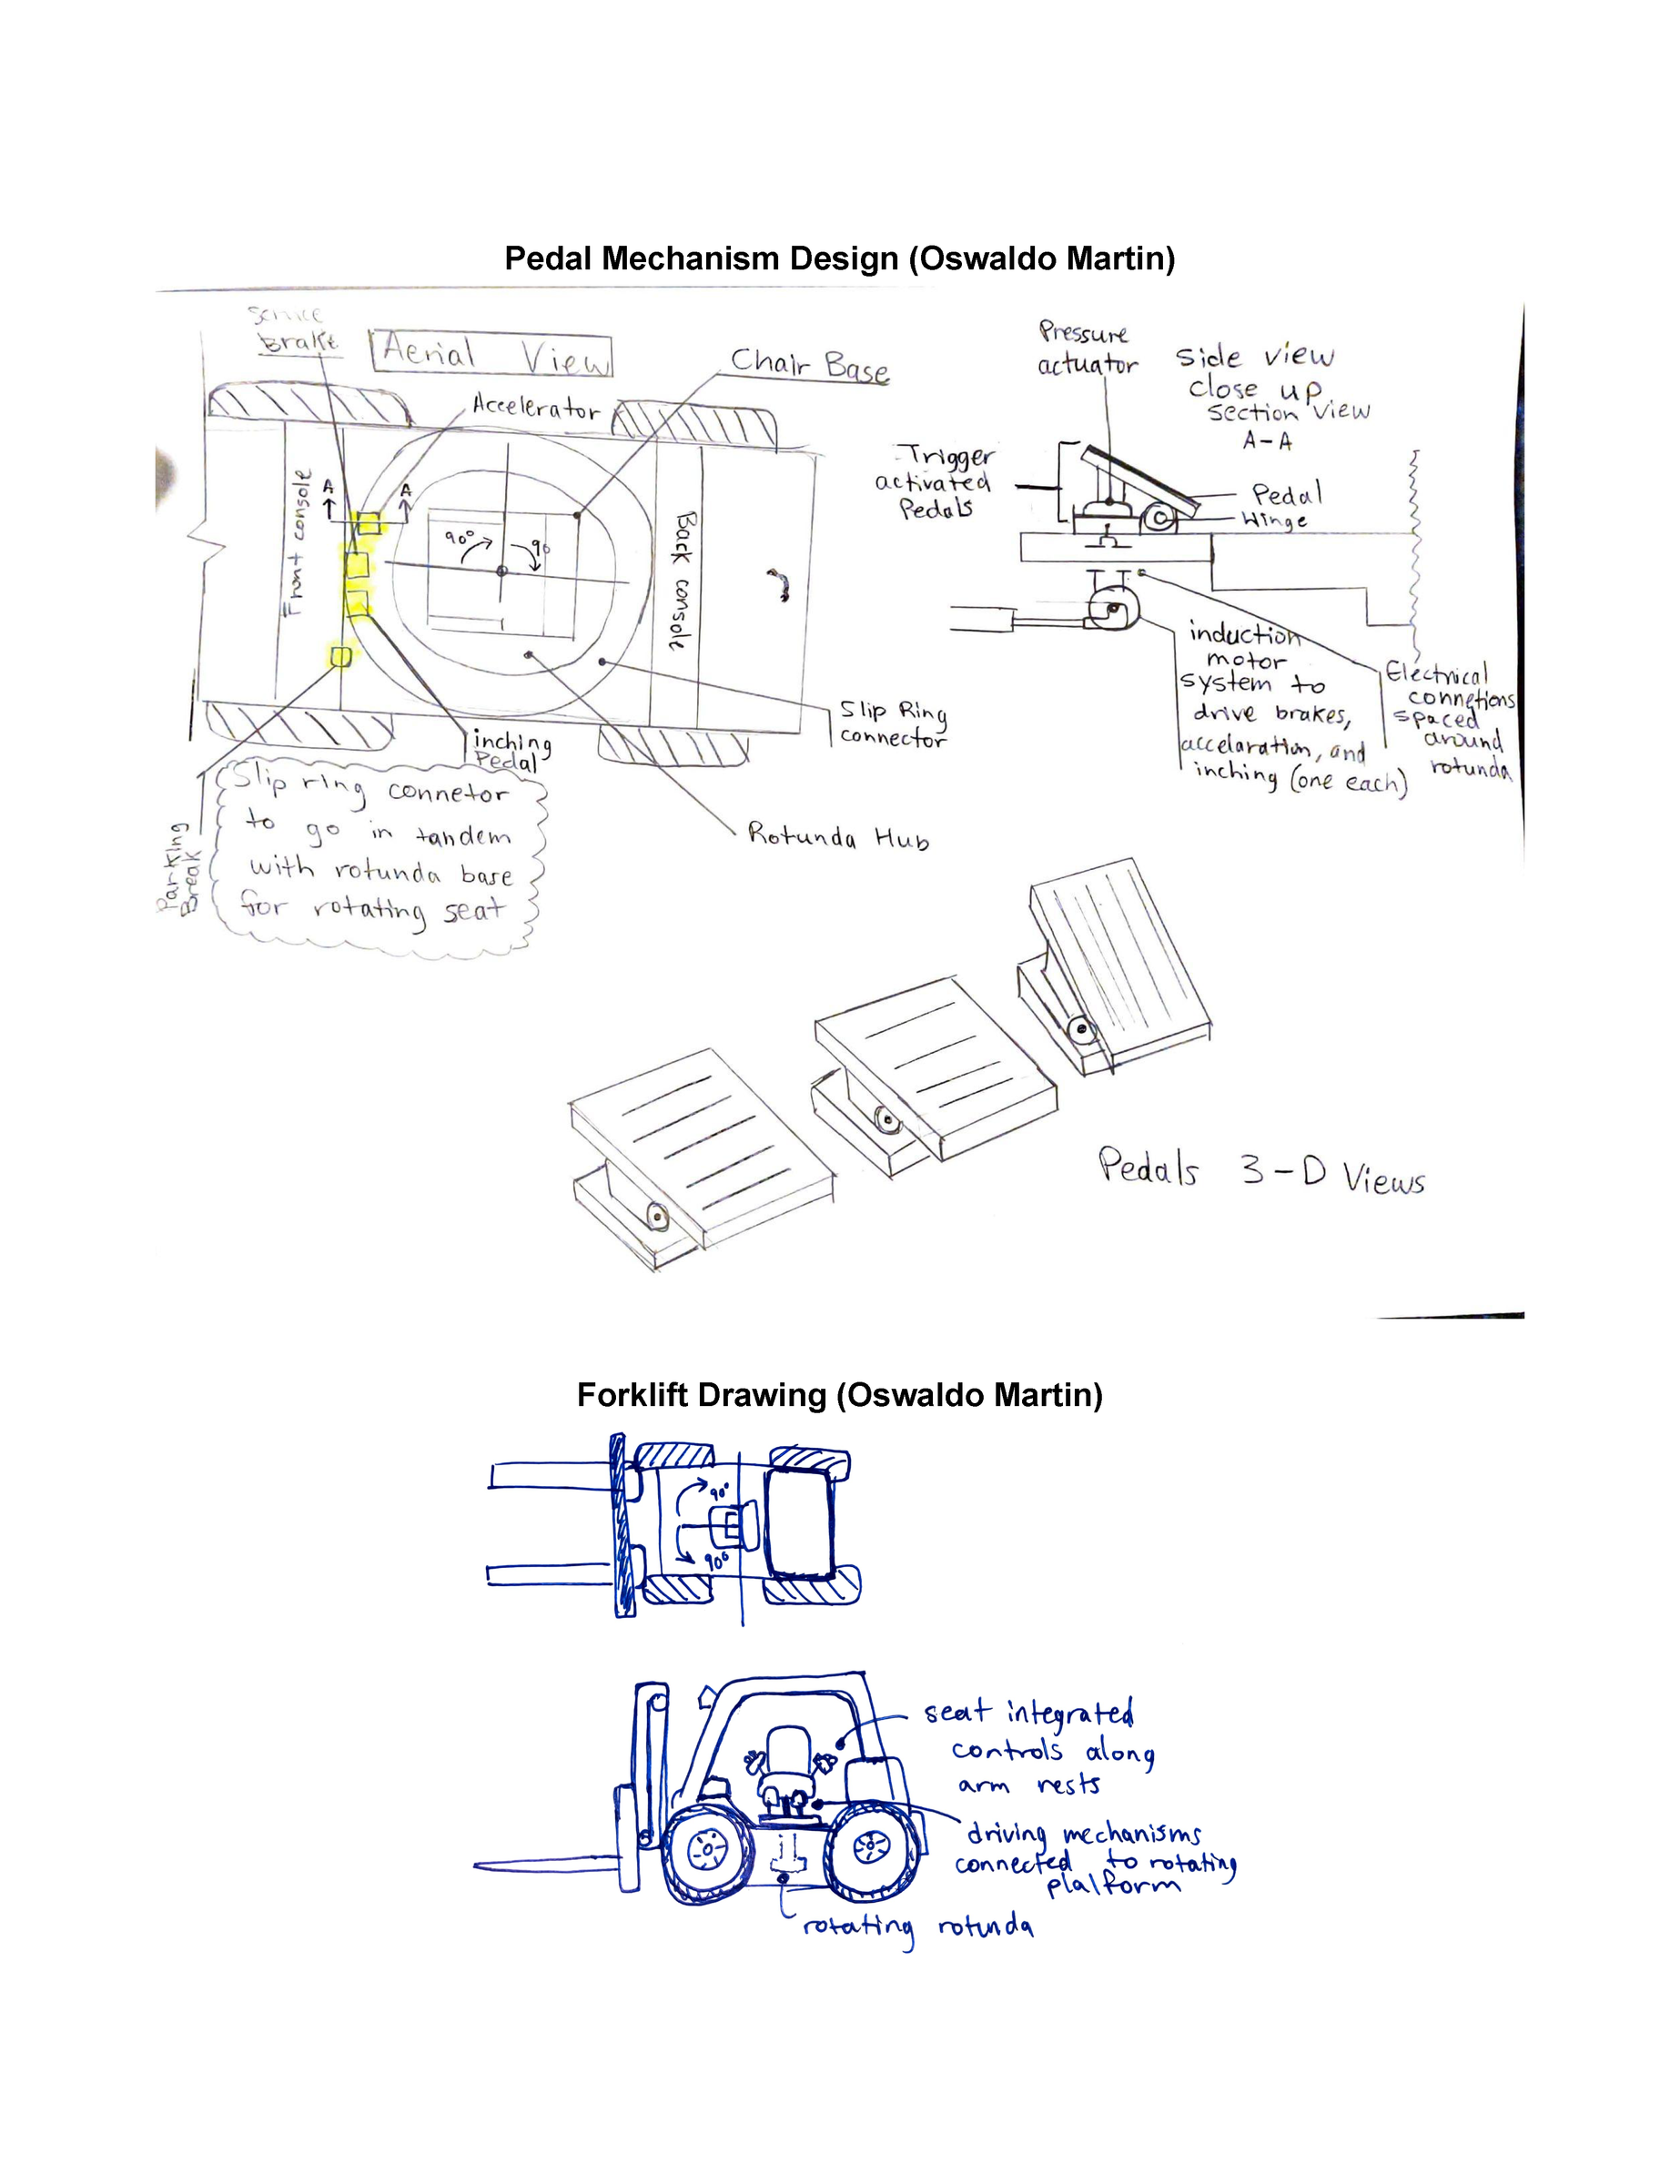 Pedal Mechanism Design (Oswaldo Martin)
Service
Brake
Aerial View
Accelerator
Chair Base
Front console
A
A
90°
90
Back console
Slip Ring
connector
inching
Pedal
Rotunda Hub
Parking
Break
Slip ring connetor
to go in tandem
with rotunda base
for rotating seat
Pressure
actuator
Side view
close up
section view
A-A
Trigger
activated
Pedals
Pedal
Hinge
induction
motor
system to
drive brakes,
accelaration, and
inching (one each)
Electrical
connetions
spaced
around
rotunda
Pedals 3-D Views
Forklift Drawing (Oswaldo Martin)
90°
90°
seat integrated
controls along
arm rests
driving mechanisms
connected to rotating
platform
rotating rotunda